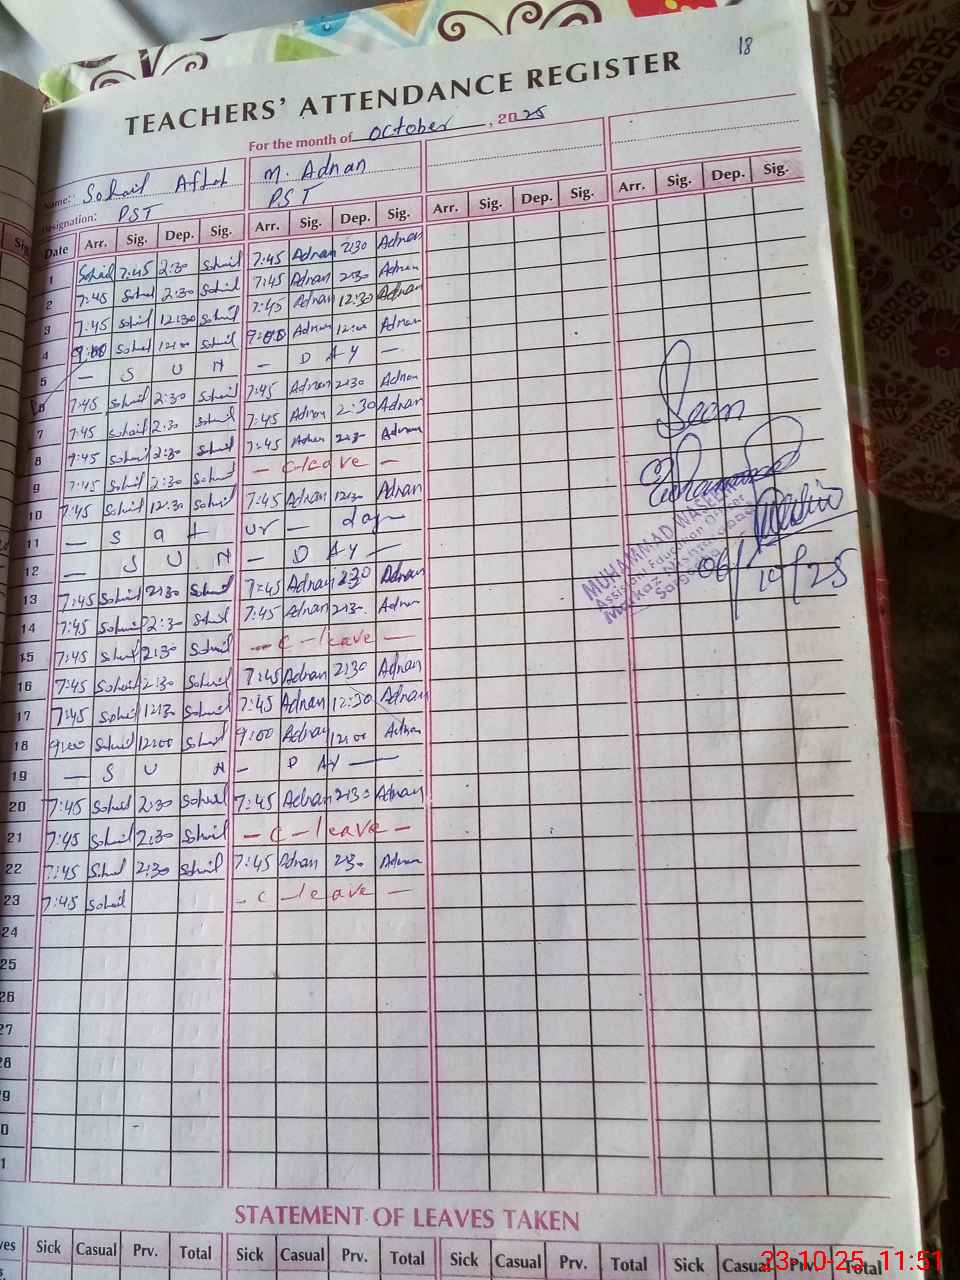 18
TEACHERS' ATTENDANCE REGISTER
For the month of October, 2025
Name: Sohail Aftab M. Adnan
Designation: PST PST
Date Arr. Sig. Dep. Sig. Arr. Sig. Dep. Sig. Arr. Sig. Dep. Sig. Arr. Sig. Dep. Sig.
1 Sohail 7:45 2:30 Sohail 7:45 Adnan 2:30 Adnan
2 7:45 Sohail 2:30 Sohail 7:45 Adnan 2:30 Adnan
3 7:45 Sohail 12:30 Sohail 7:45 Adnan 12:30 Adnan
4 9:00 Sohail 12:00 Sohail 9:00 Adnan 12:00 Adnan
5 — S U N — D A Y —
6 7:45 Sohail 2:30 Sohail 7:45 Adnan 2:30 Adnan
7 7:45 Sohail 2:30 Sohail 7:45 Adnan 2:30 Adnan
8 7:45 Sohail 2:30 Sohail 7:45 Adnan 2:30 Adnan
9 7:45 Sohail 2:30 Sohail — C-leave —
10 7:45 Sohail 12:30 Sohail 7:45 Adnan 12:30 Adnan
11 — S a t ur — day —
12 — S U N — D A Y —
13 7:45 Sohail 2:30 Sohail 7:45 Adnan 2:30 Adnan
14 7:45 Sohail 2:30 Sohail 7:45 Adnan 2:30 Adnan
15 7:45 Sohail 2:30 Sohail — C-leave —
16 7:45 Sohail 2:30 Sohail 7:45 Adnan 2:30 Adnan
17 7:45 Sohail 12:30 Sohail 7:45 Adnan 12:30 Adnan
18 9:00 Sohail 12:00 Sohail 9:00 Adnan 12:00 Adnan
19 — S U N — D AY —
20 7:45 Sohail 2:30 Sohail 7:45 Adnan 2:30 Adnan
21 7:45 Sohail 2:30 Sohail — C-leave —
22 7:45 Sohail 2:30 Sohail 7:45 Adnan 2:30 Adnan
23 7:45 Sohail — C-leave —
24
25
26
27
28
9
0
1
Seen
MUHAMMAD
Assistant Education Officer
Markaz
06/10/25
STATEMENT OF LEAVES TAKEN
ves Sick Casual Prv. Total Sick Casual Prv. Total Sick Casual Prv. Total Sick Casual Prv. Total
23-10-25 11:51